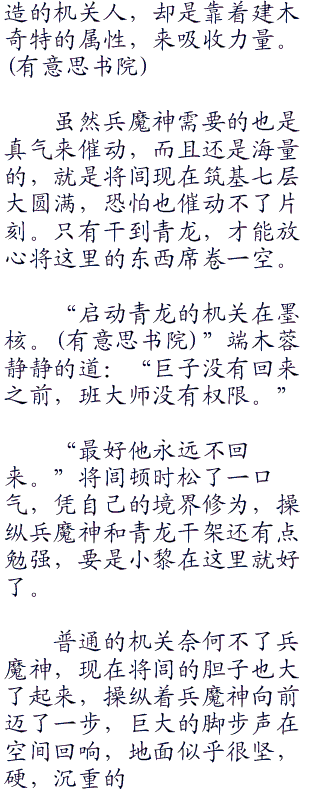 造的机关人，却是靠着建木
奇特的属性，来吸收力量。
(有意思书院)
虽然兵魔神需要的也是
真气来催动，而且还是海量
的，就是将闾现在筑基七层
大圆满，恐怕也催动不了片
刻。只有干到青龙，才能放
心将这里的东西席卷一空。
“启动青龙的机关在墨
核。(有意思书院)”端木蓉
静静的道：“巨子没有回来
之前，班大师没有权限。”
“最好他永远不回
来。”将闾顿时松了一口
气，凭自己的境界修为，操
纵兵魔神和青龙干架还有点
勉强，要是小黎在这里就好
了。
普通的机关奈何不了兵
魔神，现在将闾的胆子也大
了起来，操纵着兵魔神向前
迈了一步，巨大的脚步声在
空间回响，地面似乎很坚，
硬，沉重的